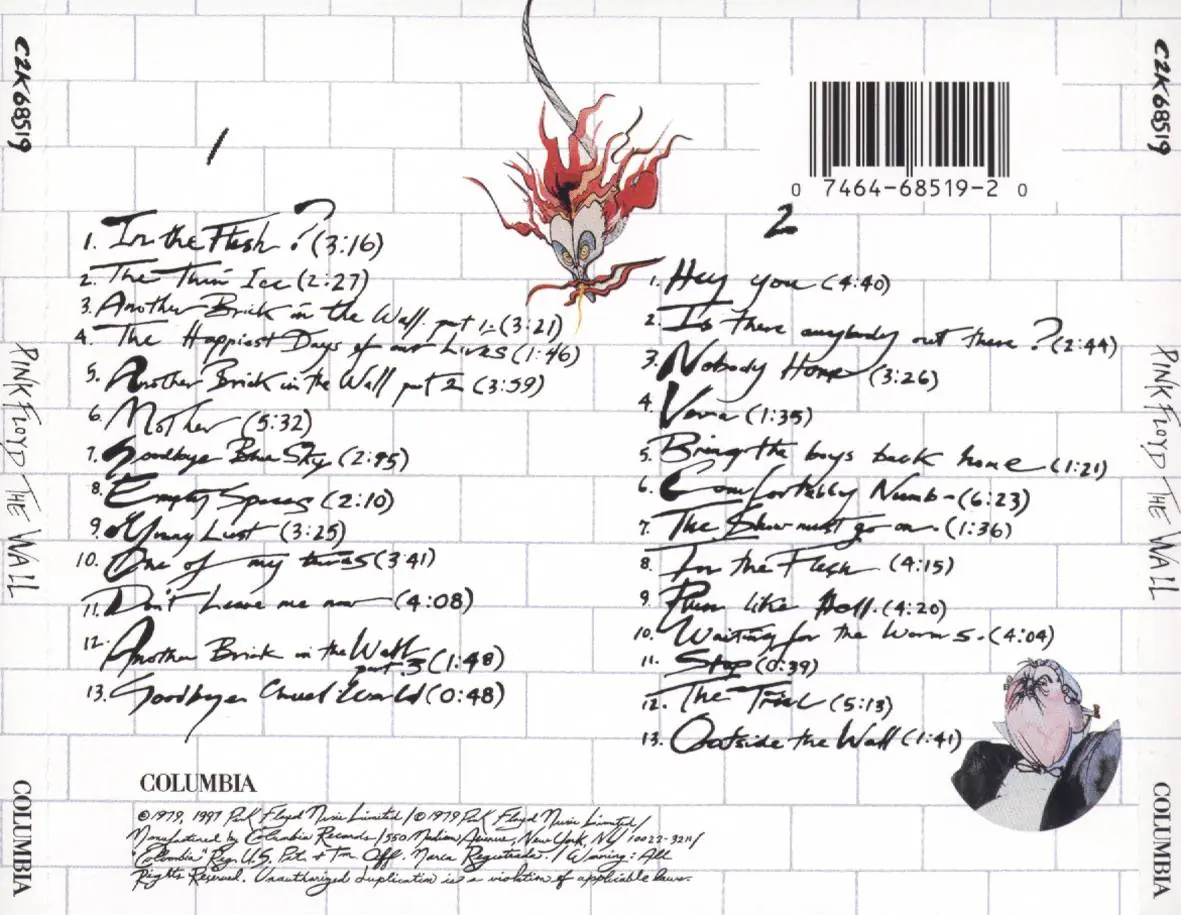 C2K68519
PINK FLOYD THE WALL
COLUMBIA
1
1. In the Flesh? (3:16)
2. The Thin Ice (2:27)
3. Another Brick in the Wall part 1 (3:21)
4. The Happiest Days of our Lives (1:46)
5. Another Brick in the Wall part 2 (3:59)
6. Mother (5:32)
7. Goodbye Blue Sky (2:45)
8. Empty Spaces (2:10)
9. Young Lust (3:25)
10. One of my turns (3:41)
11. Don't Leave me now (4:08)
12. Another Brick in the Wall
part 3 (1:48)
13. Goodbye Cruel World (0:48)
0 7464-68519-2 0
2
1. Hey you (4:40)
2. Is there anybody out there? (2:44)
3. Nobody Home (3:26)
4. Vera (1:35)
5. Bring the boys back home (1:21)
6. Comfortably Numb - (6:23)
7. The Show must go on. (1:36)
8. In the Flesh (4:15)
9. Run like Hell. (4:20)
10. Waiting for the Worms. (4:04)
11. Stop (0:39)
12. The Trial (5:13)
13. Outside the Wall (1:41)
COLUMBIA
©1979, 1997 Pink Floyd Music Limited / ℗1979 Pink Floyd Music Limited /
Manufactured by Columbia Records / 550 Madison Avenue, New York, NY / 10022-3211 /
"Columbia" Reg. U.S. Pat. + Tm. Off. Marca Registrada. / Warning: All
Rights Reserved. Unauthorized duplication is a violation of applicable laws.
C2K68519
PINK FLOYD THE WALL
COLUMBIA